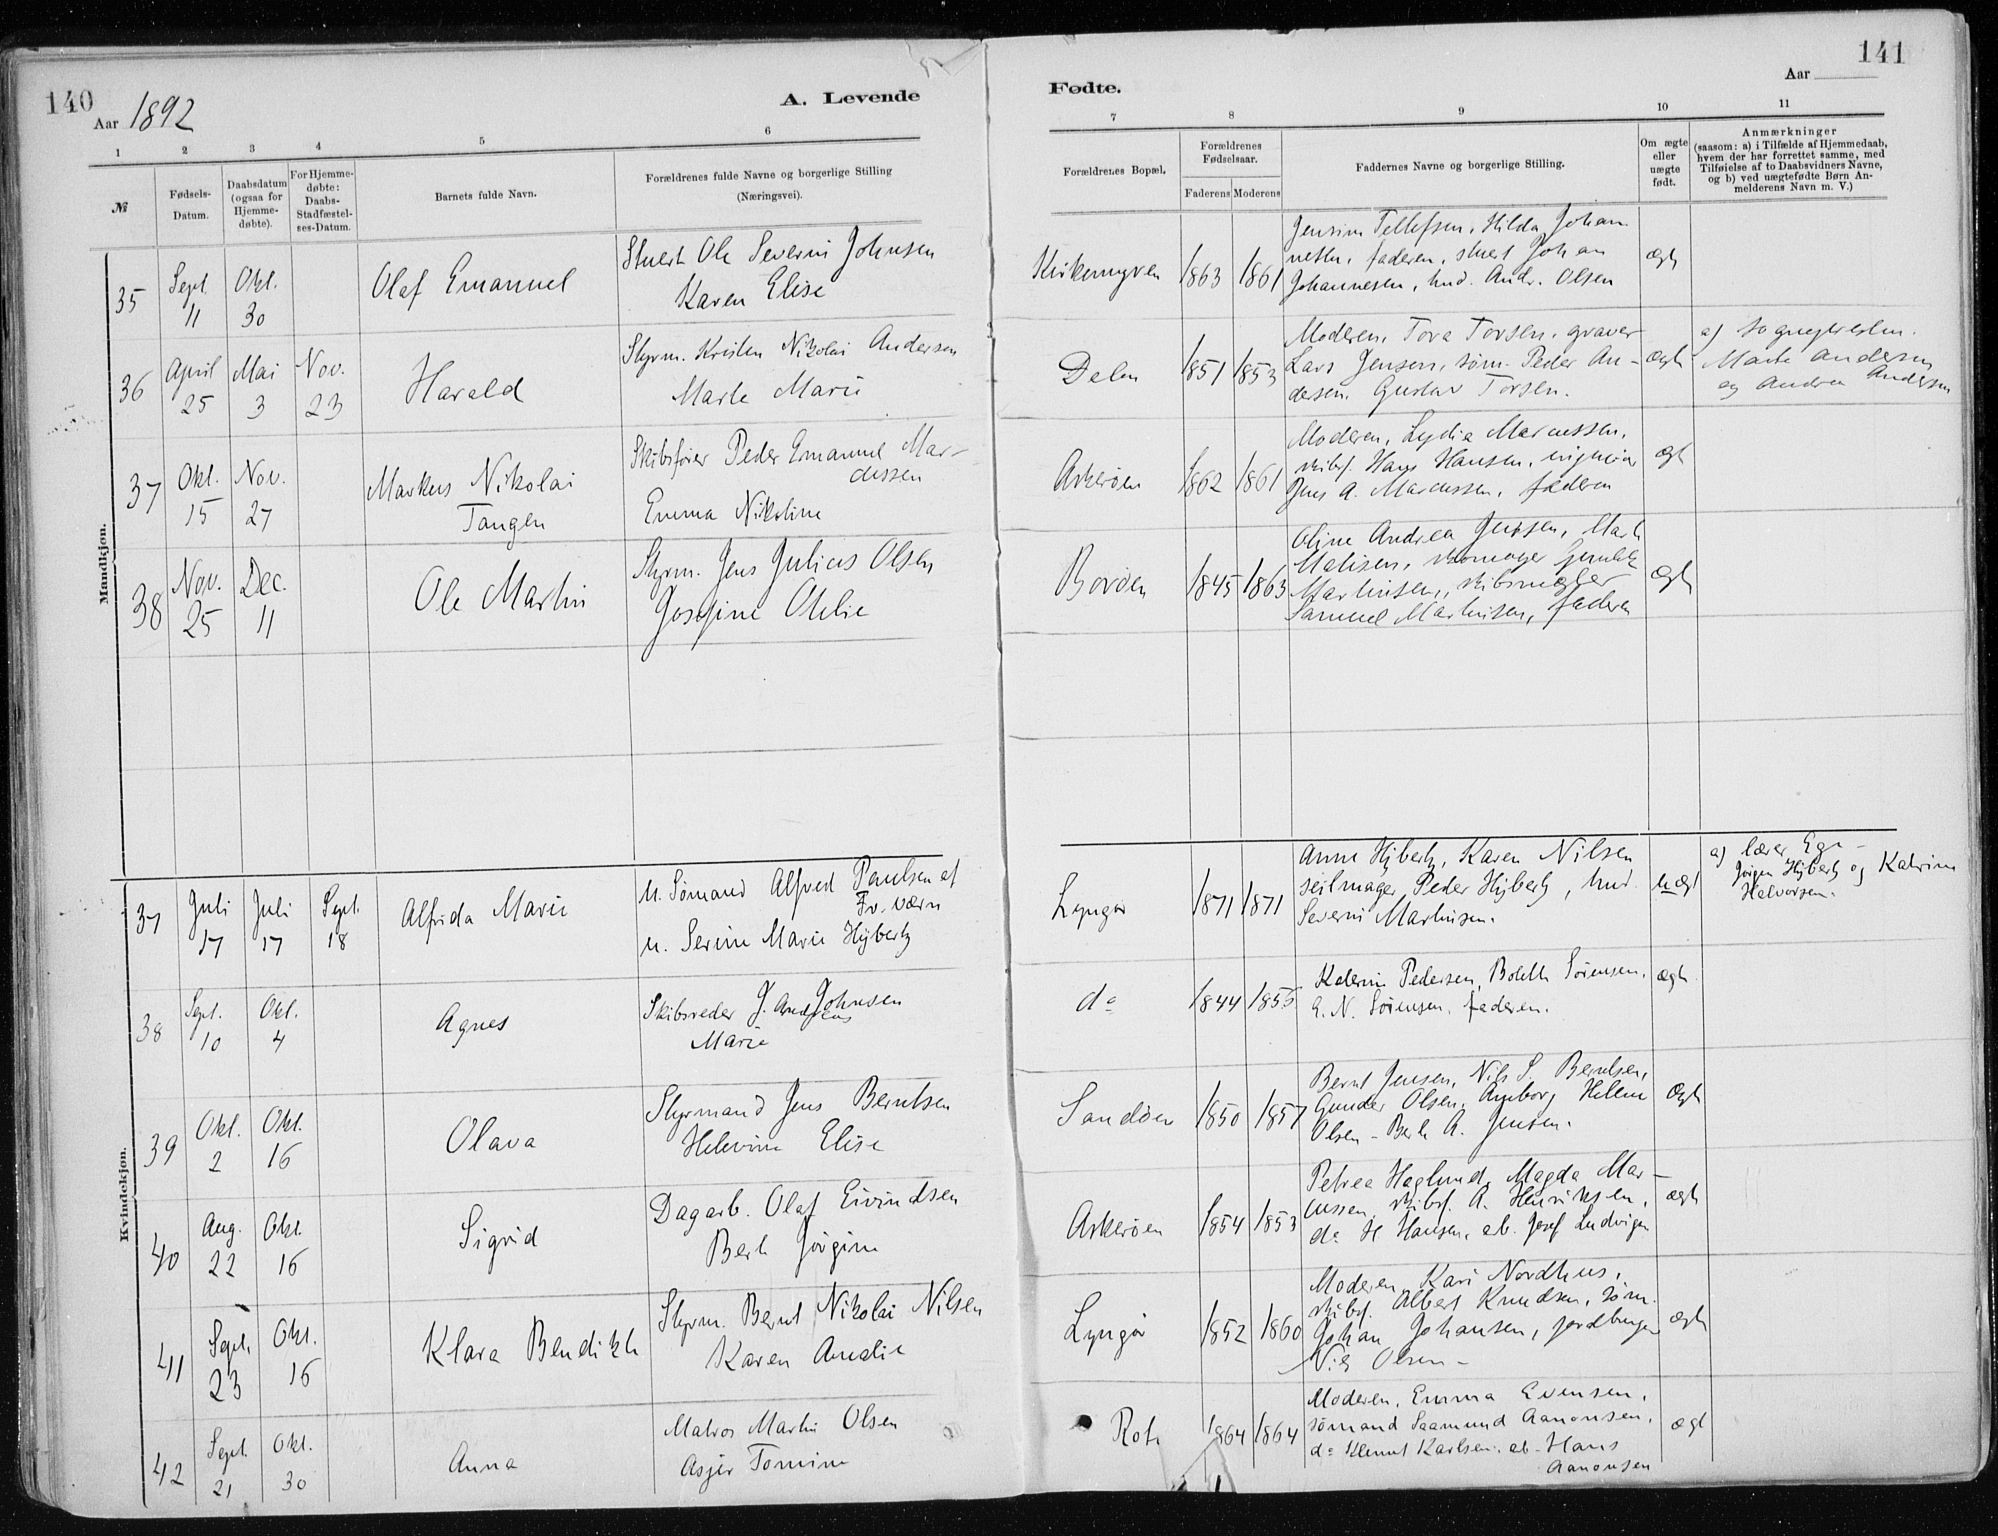 140
Aar 1892
A. Levende
1 2 3 4 5 6
№
Fødsels-
Datum.
Daabsdatum
(ogsaa for
Hjemme-
døbte).
For Hjemme-
døbte:
Daabs-
Stadfæstel-
ses-Datum.
Barnets fulde Navn.
Forældrenes fulde Navne og borgerlige Stilling
(Næringsvei).
Mandkjøn.
35 Sept. 11 Okt. 30
Olaf Emanuel
Stuert Ole Severin Johnsen
Karen Elise
36 April 25 Mai 3 Nov. 23
Harald
Styrm. Kristen Nikolai Andersen
Marte Marie
37 Okt. 15 Nov. 27
Markus Nikolai
Tangen
Skibsfører Peder Emanuel Mar-
cussen
Emma Nikoline
38 Nov. 25 Dec. 11
Ole Martin
Styrm. Jens Julius Olsen
Josefine Otilie
Kvindekjøn.
37 Juli 17 Juli 17 Sept. 18
Alfrida Marie
U. Sømand Alfred Paulsen af
Fr. værn
u. Serine Marie Hÿbertz
38 Sept. 10 Okt. 4
Agnes
Skibsreder J. Andreas Johnsen
Marie
39 Okt. 2 Okt. 16
Olava
Styrmand Jens Berntsen
Helevine Elise
40 Aug. 22 Okt. 16
Sigrid
Dagarb. Olaf Eivindsen
Berte Jørgine
41 Sept. 23 Okt. 16
Klara Bendikte
Styrm. Bernt Nikolai Nilsen
Karen Amalie
42 Sept. 21 Okt. 30
Anna
Matros Martin Olsen
Asjer Tomine
141
Aar
Fødte.
7 8 9 10 11
Forældrenes Bopæl.
Forældrenes
Fødselsaar.
Faderens Moderens
Faddernes Navne og borgerlige Stilling.
Om ægte
eller
uægte
født.
Anmærkninger
(saasom: a) i Tilfælde af Hjemmedaab,
hvem der har forrettet samme, med
Tilføielse af to Daabsvidners Navne,
og b) ved uægtefødte Børn An-
melderens Navn m. V.)
Kirkemyren 1863 1861
Jensine Tellefsen, Hilda Johan
nesen, faderen, stuert Johan
Johannesen, tmd. Andr. Olsen
ægte
Delen 1851 1853
Moderen, Tora Torsen, graver
Lars Jensen, søm. Peder An-
dersen, Gustav Torsen.
ægte
Marte Andersen
og Andrea Andersen
Askerøen 1862 1861
Moderen, Lydia Marcussen,
skibsf. Hans Hansen,
Jens A. Marcussen, faderen
ægt
Borøen 1845 1863
Oline Andrea Jensen, Marte
Matisen, skomager
Martinsen, skibsmægler
Samuel Martinsen, faderen
ægte
Lyngør 1871 1871
Anne Hÿbertz, Karen Nilsen
seilmager Peder Hÿbertz, tmd.
Severin Martinsen.
uægt
a) lærer Ege-
Jørgen Hÿbertz og Katrine
Halvorsen.
do 1844 1855
Katerine Pedersen, Bolette Sørensen,
A. N. Sørensen, faderen.
ægte
Sandøen 1850 1857
Bernt Jensen, Nils S. Berntsen,
Gunder Olsen, Anborg Helene
Olsen - Berte A. Jensen.
ægte
Askerøen 1854 1853
Petrea Haglund, Magda Mar-
cussen, skibsf. A. Henriksen,
do H Hansen, arb. Josef Ludvigsen
ægte
Lyngør 1852 1860
Moderen, Kari Nordhus,
skibsf. Albert Knudsen, søm.
Johan Johansen, jordbruger
Nils Olsen -
ægte
Rota 1864 1864
Moderen, Emma Evensen,
sømand Saamund Aanonsen,
do Klemet Karlsen, arb. Hans
Aanonsen
ægt